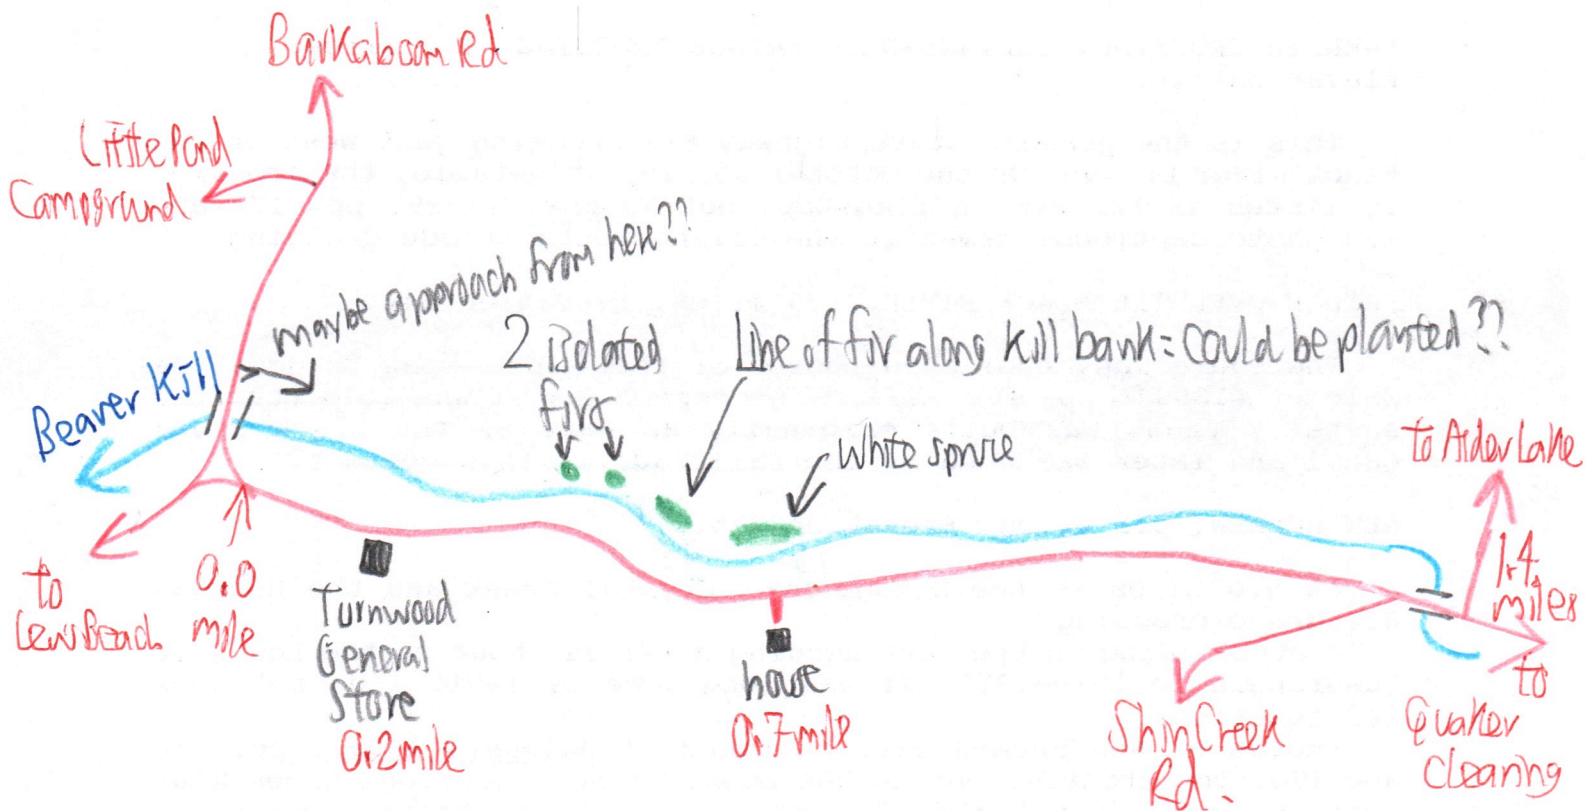 Barkaboom Rd
Little Pond
Campground
maybe approach from here??
2 isolated
firs
Line of fir along Kill bank = could be planted??
Beaver Kill
White spruce
to Alder Lake
1.4
miles
0.0
mile
to
Lews Beach
Turnwood
General
Store
0.2 mile
house
0.7 mile
Shin Creek
Rd.
to
Quaker
Clearing